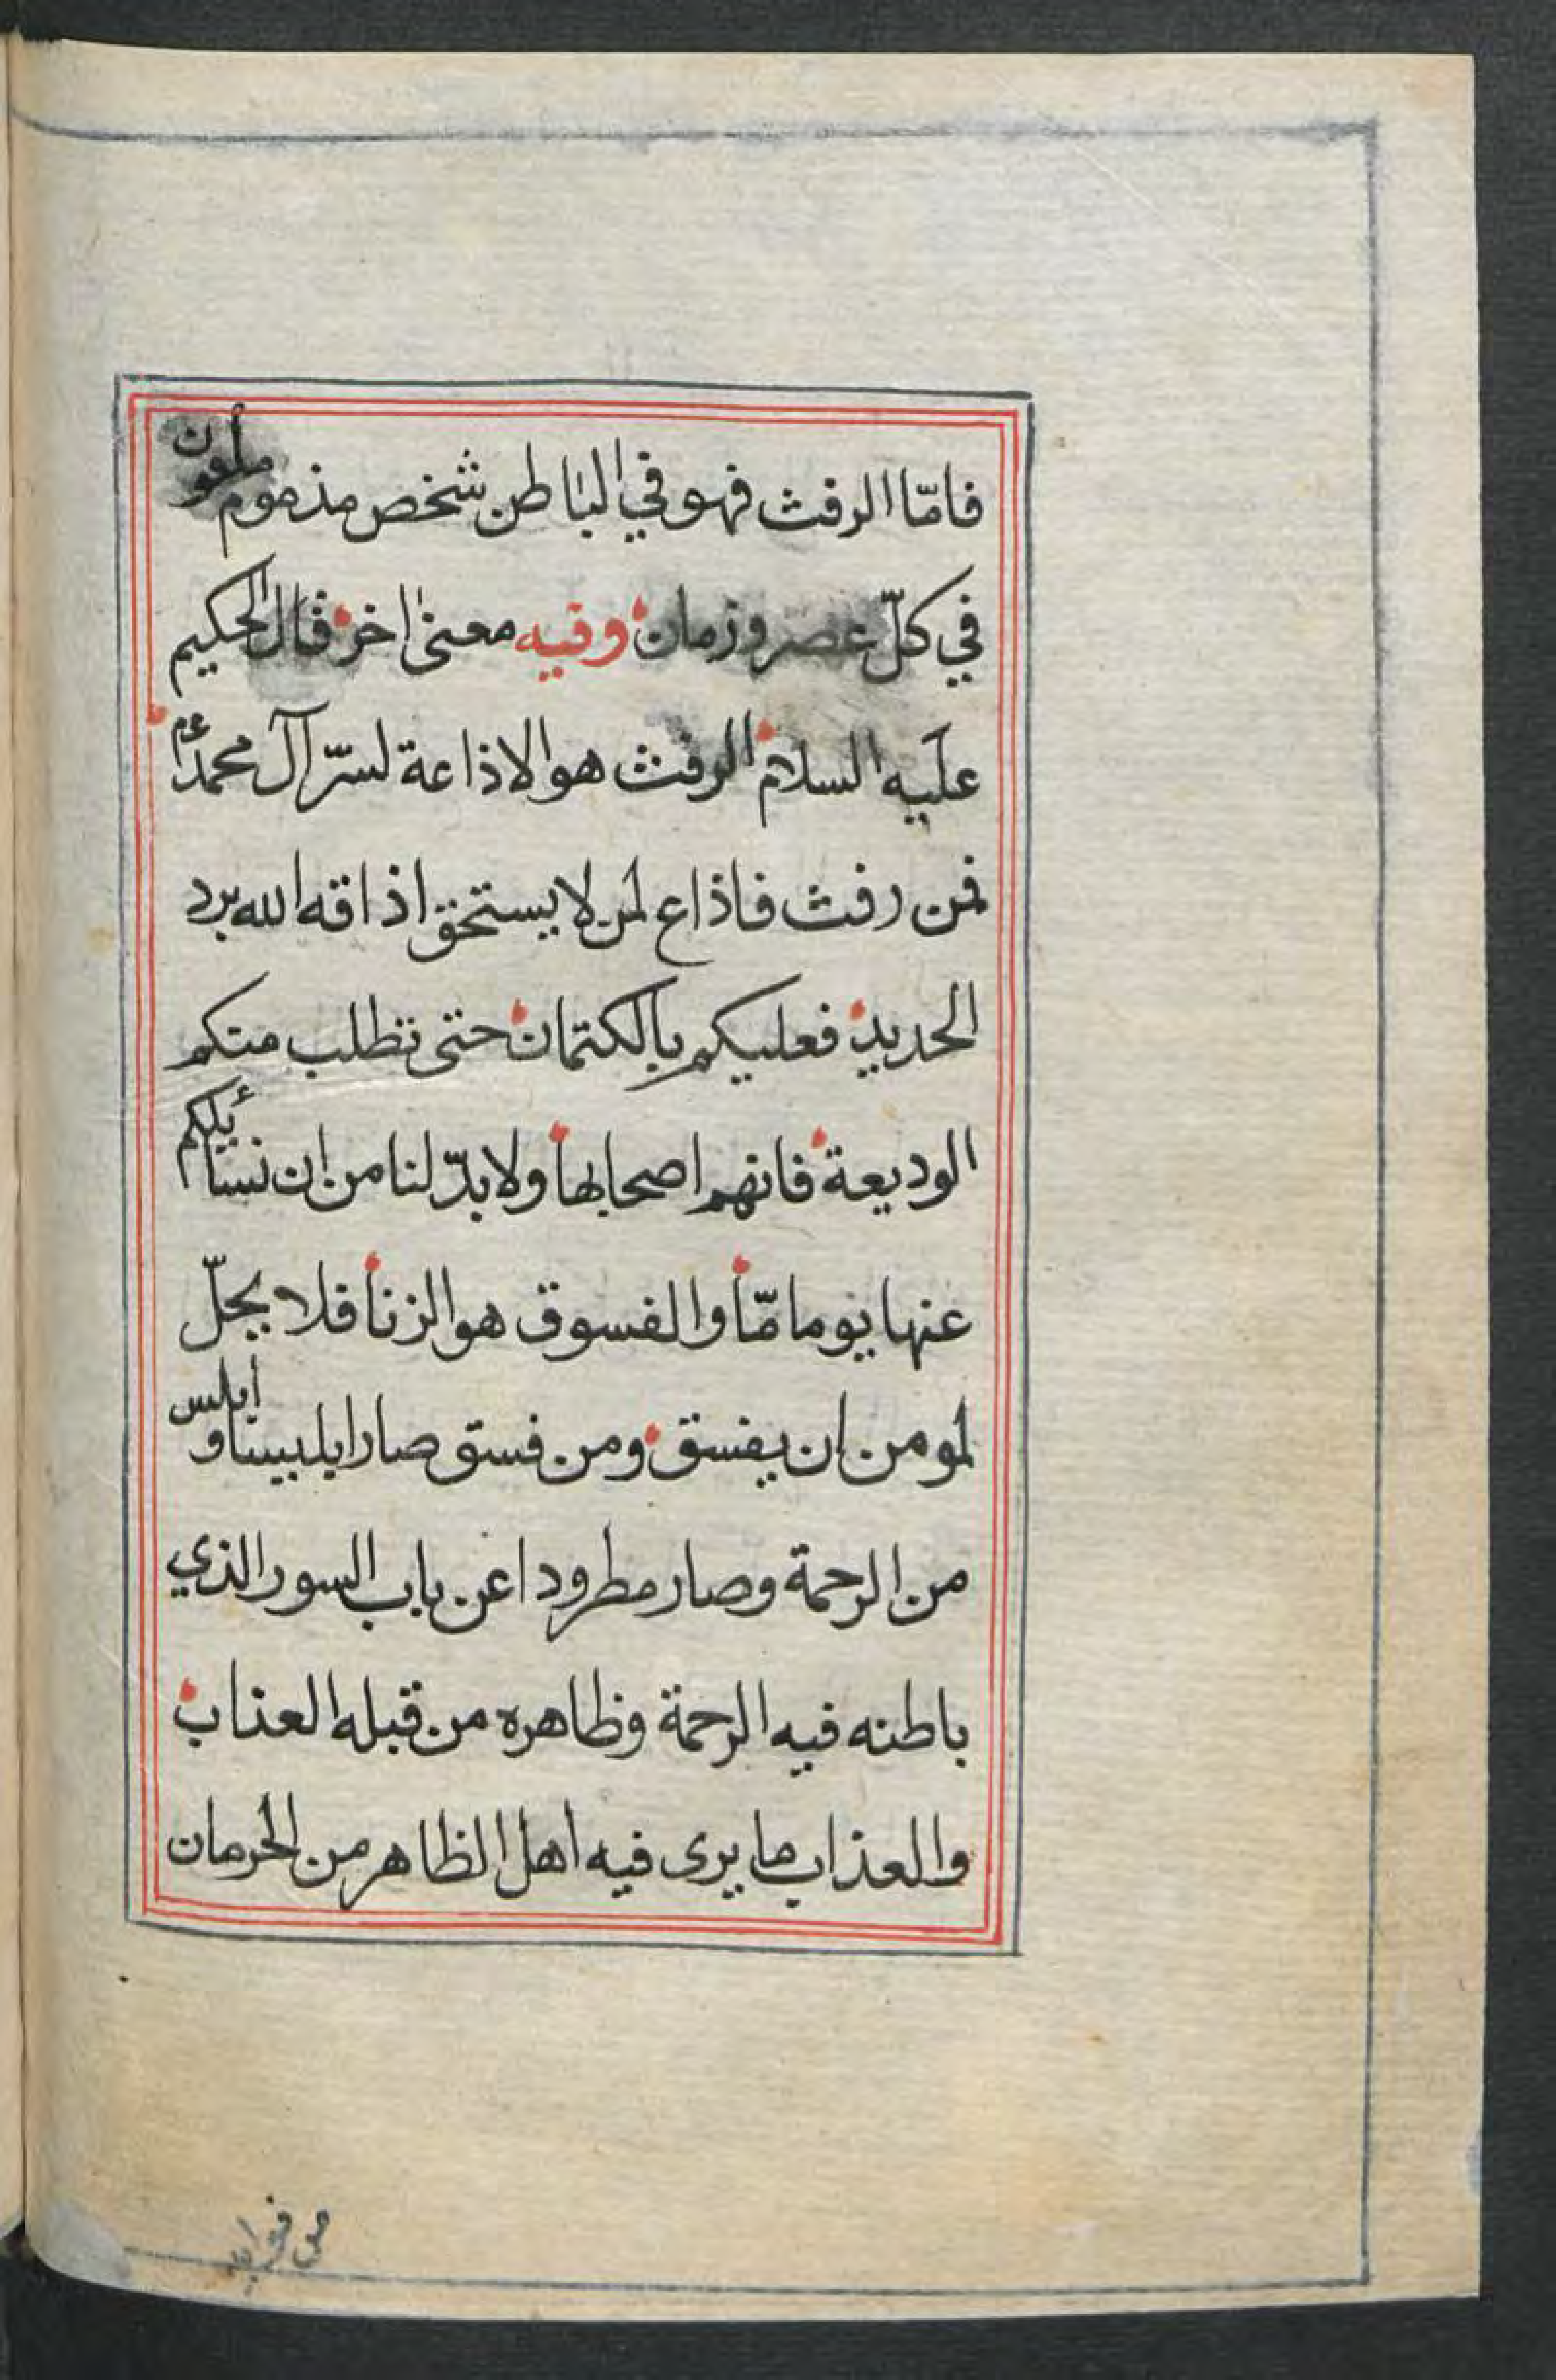 فامّا الرفث فهو في الباطن شخص مذموم ملعون
في كلّ عصر وزمان وفيه معنى اخر قال الحكيم
عليه السلام الرفث هو الاذاعة لسرّ آل محمد ءم
فمن رفث فاذاع لمن لا يستحق اذاقه الله برد
الحديد فعليكم بالكتمان حتى تطلب منكم
الوديعة فانهم اصحابها ولا بدّ لنا من ان نسائيلكم
عنها يوما مّا والفسوق هو الزنا فلا يحلّ
لمومن ان يفسق ومن فسق صار ابليسا وابلس
من الرحمة وصار مطرودا عن باب السور الذي
باطنه فيه الرحمة وظاهره من قبله العذاب
والعذاب ما يرى فيه اهل الظاهر من الحرمان
من فوايد